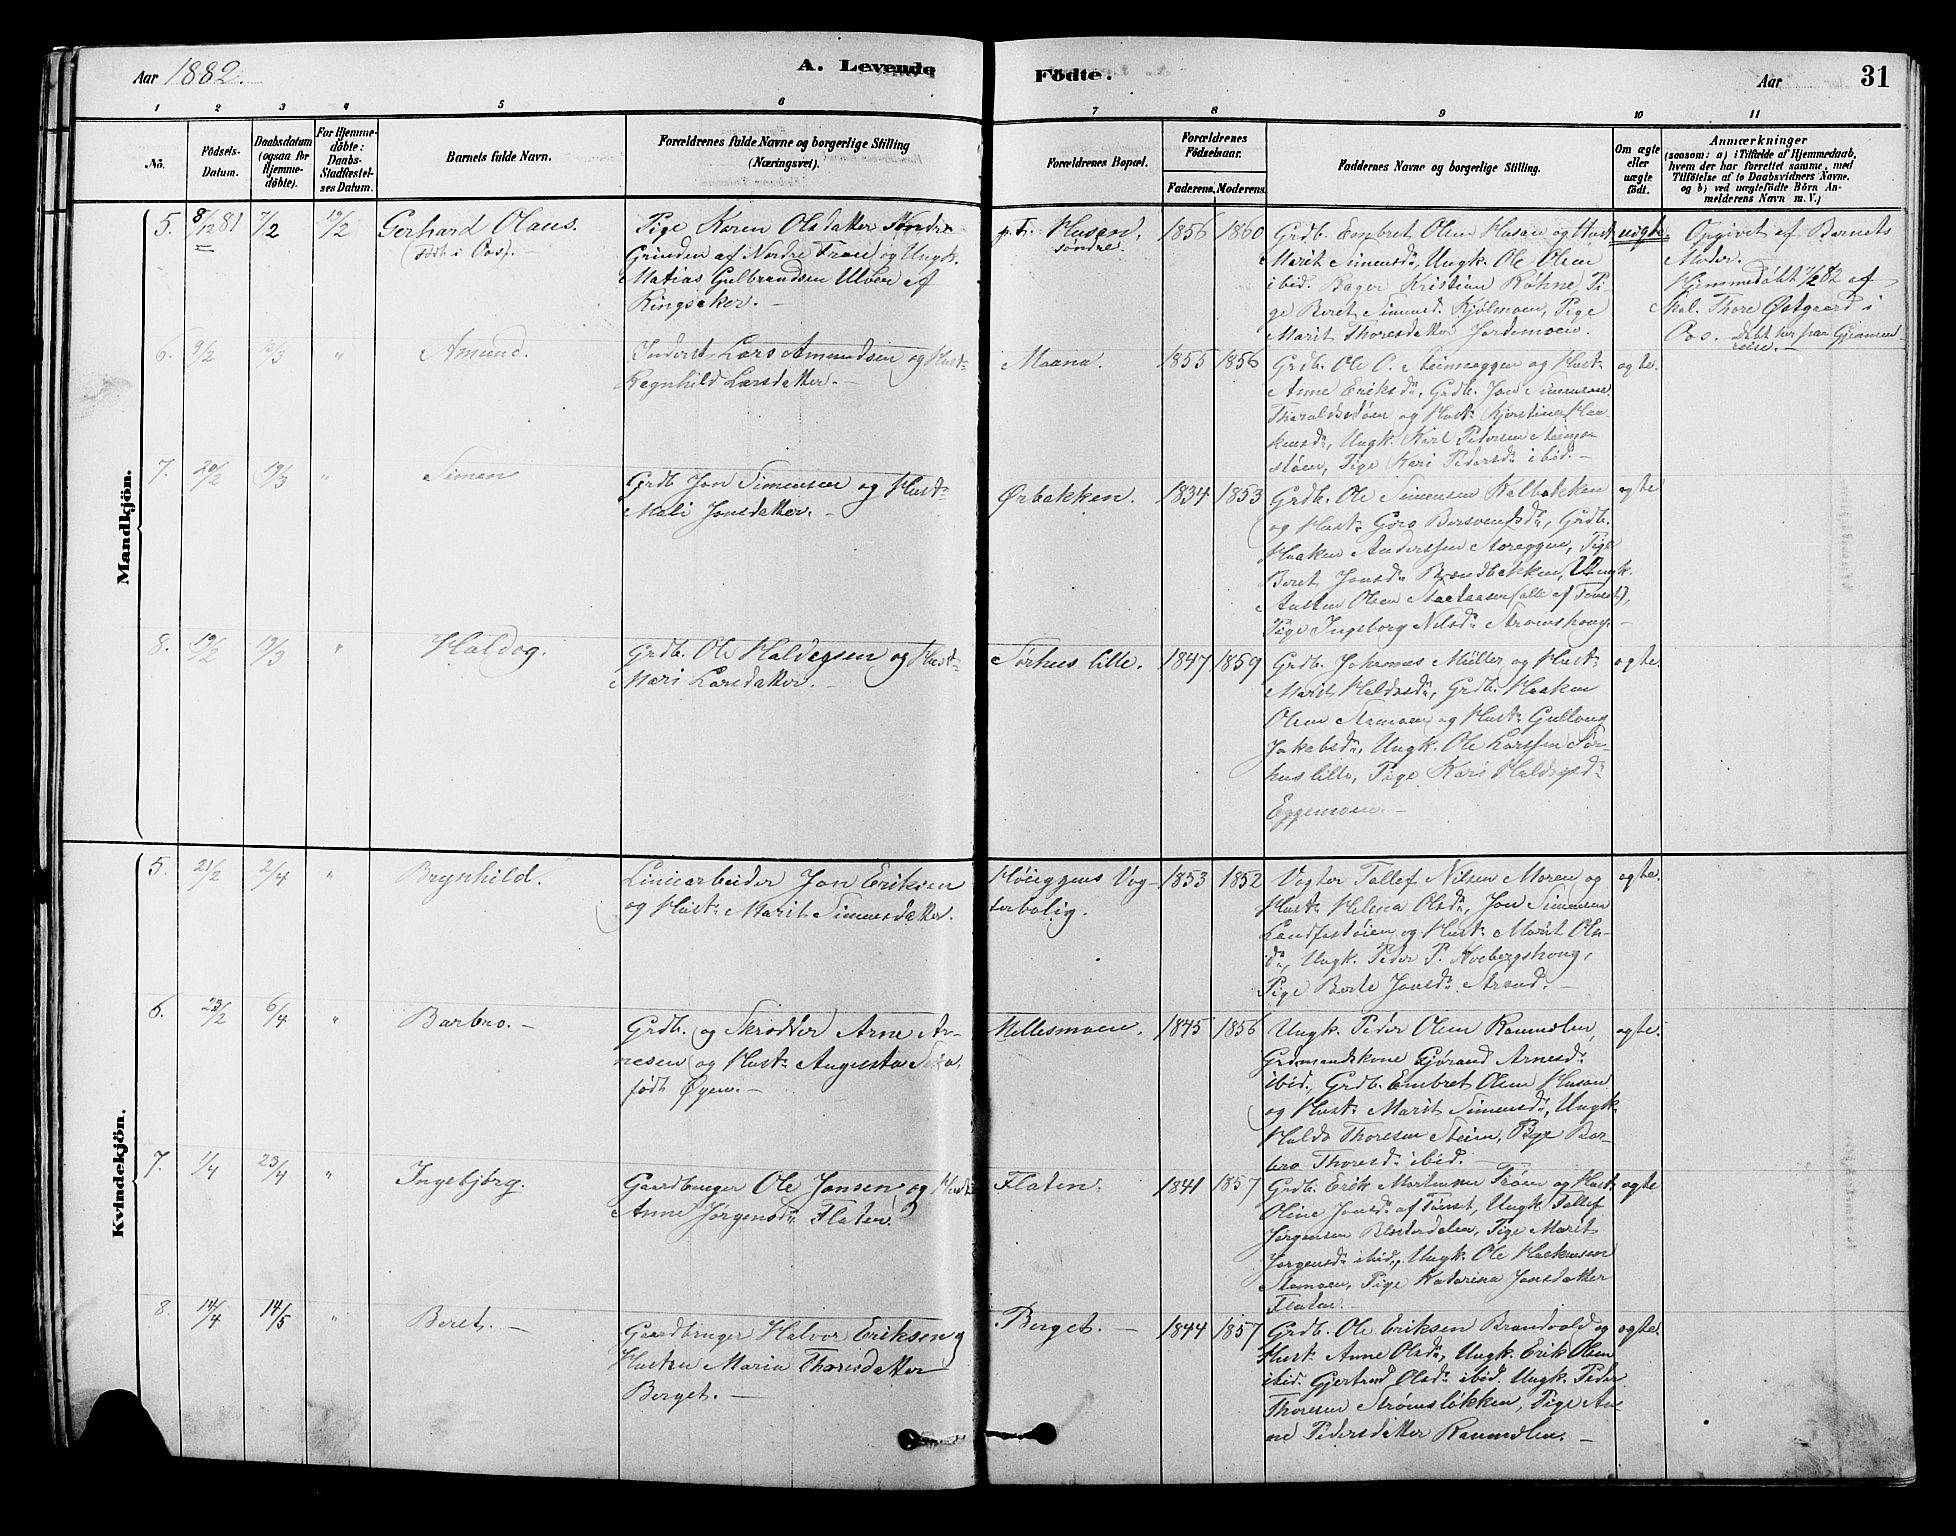 Aar 1882.
A. Levende Födte.
Aar
31
1 2 3 4 5 6 7 8 9 10 11
No.
Födsels-Datum.
Daabsdatum (ogsaa for Hjemme-döbte).
For Hjemme-döbte: Daabs-Stadfæstel-ses Datum.
Barnets fulde Navn.
Forældrenes fulde Navne og borgerlige Stilling (Næringsvei).
Forældrenes Bopæl.
Forældrenes Födselsaar.
Faderens. Moderens.
Faddernes Navne og borgerlige Stilling.
Om ægte eller uægte født.
Anmærkninger
(saasom: a) i Tilfælde af Hjemmedaab, hvem der har forrettet samme, med Tilföielse af to Daabsvidners Navne, og b) ved uægtefödte Börn An-melderens Navn m. V.)
Mandkjön.
5. 8/12 81 7/2 19/2 Gerhard Olaus.
(Født i Vos). -
Pige Karen Olsdatter Søndre
Grinden af Nordre Tron og Ungk.
Matias Gulbrandsen Ulven af
Ringsaker. -
p.t. Husan,
søndre.
1856 1860
Grdb. Embret Olsen Husan og Hust.
Marit Simensdr, Ungk. Ole Olsen
ibid. Bager Kristian Røhne, Pi-
ge Beret Simensd. Kjølmoen, Pige
Marit Thoresdatter Jordemoen.
uægte
Opgivet af Barnets
Moder.
Hjemmedøbt 7/2 82 af
Skol. Thore Østgaard i
Vos.
6. 9/2 12/3 " Amund.
Inderst Lars Amundsen og Hust.
Ragnhild Larsdatter. -
Maana.
1855 1856
Grdb. Ole O. Steimoeggen og Hust.
Anne Eriksdr, Grdb. Jon Simensen
Tharaldsstøen og Hust. Kjerstine Haa-
kensdr, Ungk. Karl Pedersen Steims-
støen, Pige Kari Pedersdr ibid. -
ægte.
7. 20/2 19/3 " Simen
Grdb. Jon Simensen og Hust.
Mali Jonsdatter. -
Ørbakken.
1834 1853
Grdb. Ole Simensen Kalbakken
og Hust. Goro Bersvendsdr, Grdb.
Haaken Anderssen Storeggen, Pige
Beret Jonsdr Brændbakken, Ungk.
Austen Olsen (alle af Tønset),
Pige Ingeborg Nilsdr Strømshoug. -
ægte
8. 19/2 19/3 " Haldog.
Grdb. Ole Haldogsen og Hust.
Mari Larsdatter. -
Sørhus lille.
1847 1859
Grdb. Johannes Müller og Hust.
Marit Haldosdr, Grdb. Haaken
Olsen Stamoen og Hust. Gullaug
Jakobsdr, Ungk. Ole Larssen Sør-
hus lille, Pige Kari Haldogsdr
Eggemoen. -
ægte.
Kvindekjön.
5. 21/2 2/4 " Brynhild.
Liniearbeider Jon Eriksen
og Hust. Marit Simensdatter.
Høieggens Vog-
terbolig.
1853 1852
Vogter Tollef Nilsen Moren og
Hust. Helena Olsdr, Jon Simensen
Landfastøien og Hust. Marit Ols-
dr, Ungk. Peder P. Kvebergshoug,
Pige Berte Jonsdr Strand. -
ægte.
6. 23/2 6/4 " Barbro. -
Grdb. og Skrædder Arne Ar-
nesen og Hust. Augusta
født Øyen. -
Millesmoen.
1845 1856
Ungk. Peder Olsen Raumolen,
Grdmandskone Gjørand Arnesdr
ibid., Grdb. Embret Olsen Husan
og Hust. Marit Simensdr, Ungk.
Haldo Thoresen Steien, Pige Bar-
bro Thoresdr ibid. -
ægte.
7. 1/4 23/4 " Ingebjørg.
Gaardbruger Ole Jonsen og Hust.
Anne Jørgensdr Flaten.
Flaten.
1841 1857
Grdb. Erik Mortensen Trøen og Hust.
Oline Jonsdr af Tønset, Ungk. Tollef
Jørgensen Blesterdalen, Pige Marit
Jørgensdr ibid., Ungk. Ole Haakensen
Stamoen, Pige Katarina Jonsdatter
Flatan. -
ægte
8. 14/4 14/5 " Beret. -
Gaardbruger Halvor Eriksen og
Hustru Maria Thoresdatter
Berget. -
Berget. -
1844 1857
Grdb. Ole Eriksen Brandvold og
Hust. Anne Olsdr, Ungk. Erik Olsen
ibid. Gjertrud Olsdr ibid. Ungk. Peder
Thoresen Strømsløkken, Pige An-
ne Pedersdatter Raumolen. -
ægte.